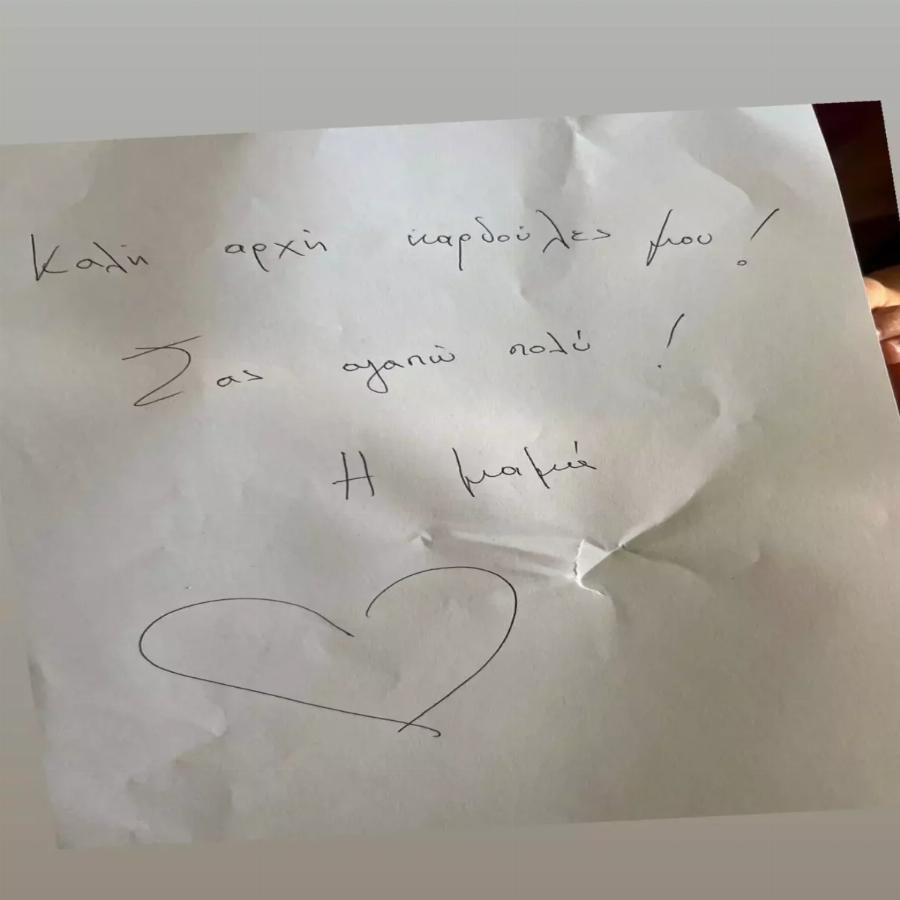 Καλή αρχή καρδούλες μου!
Σας αγαπώ πολύ!
Η μαμά